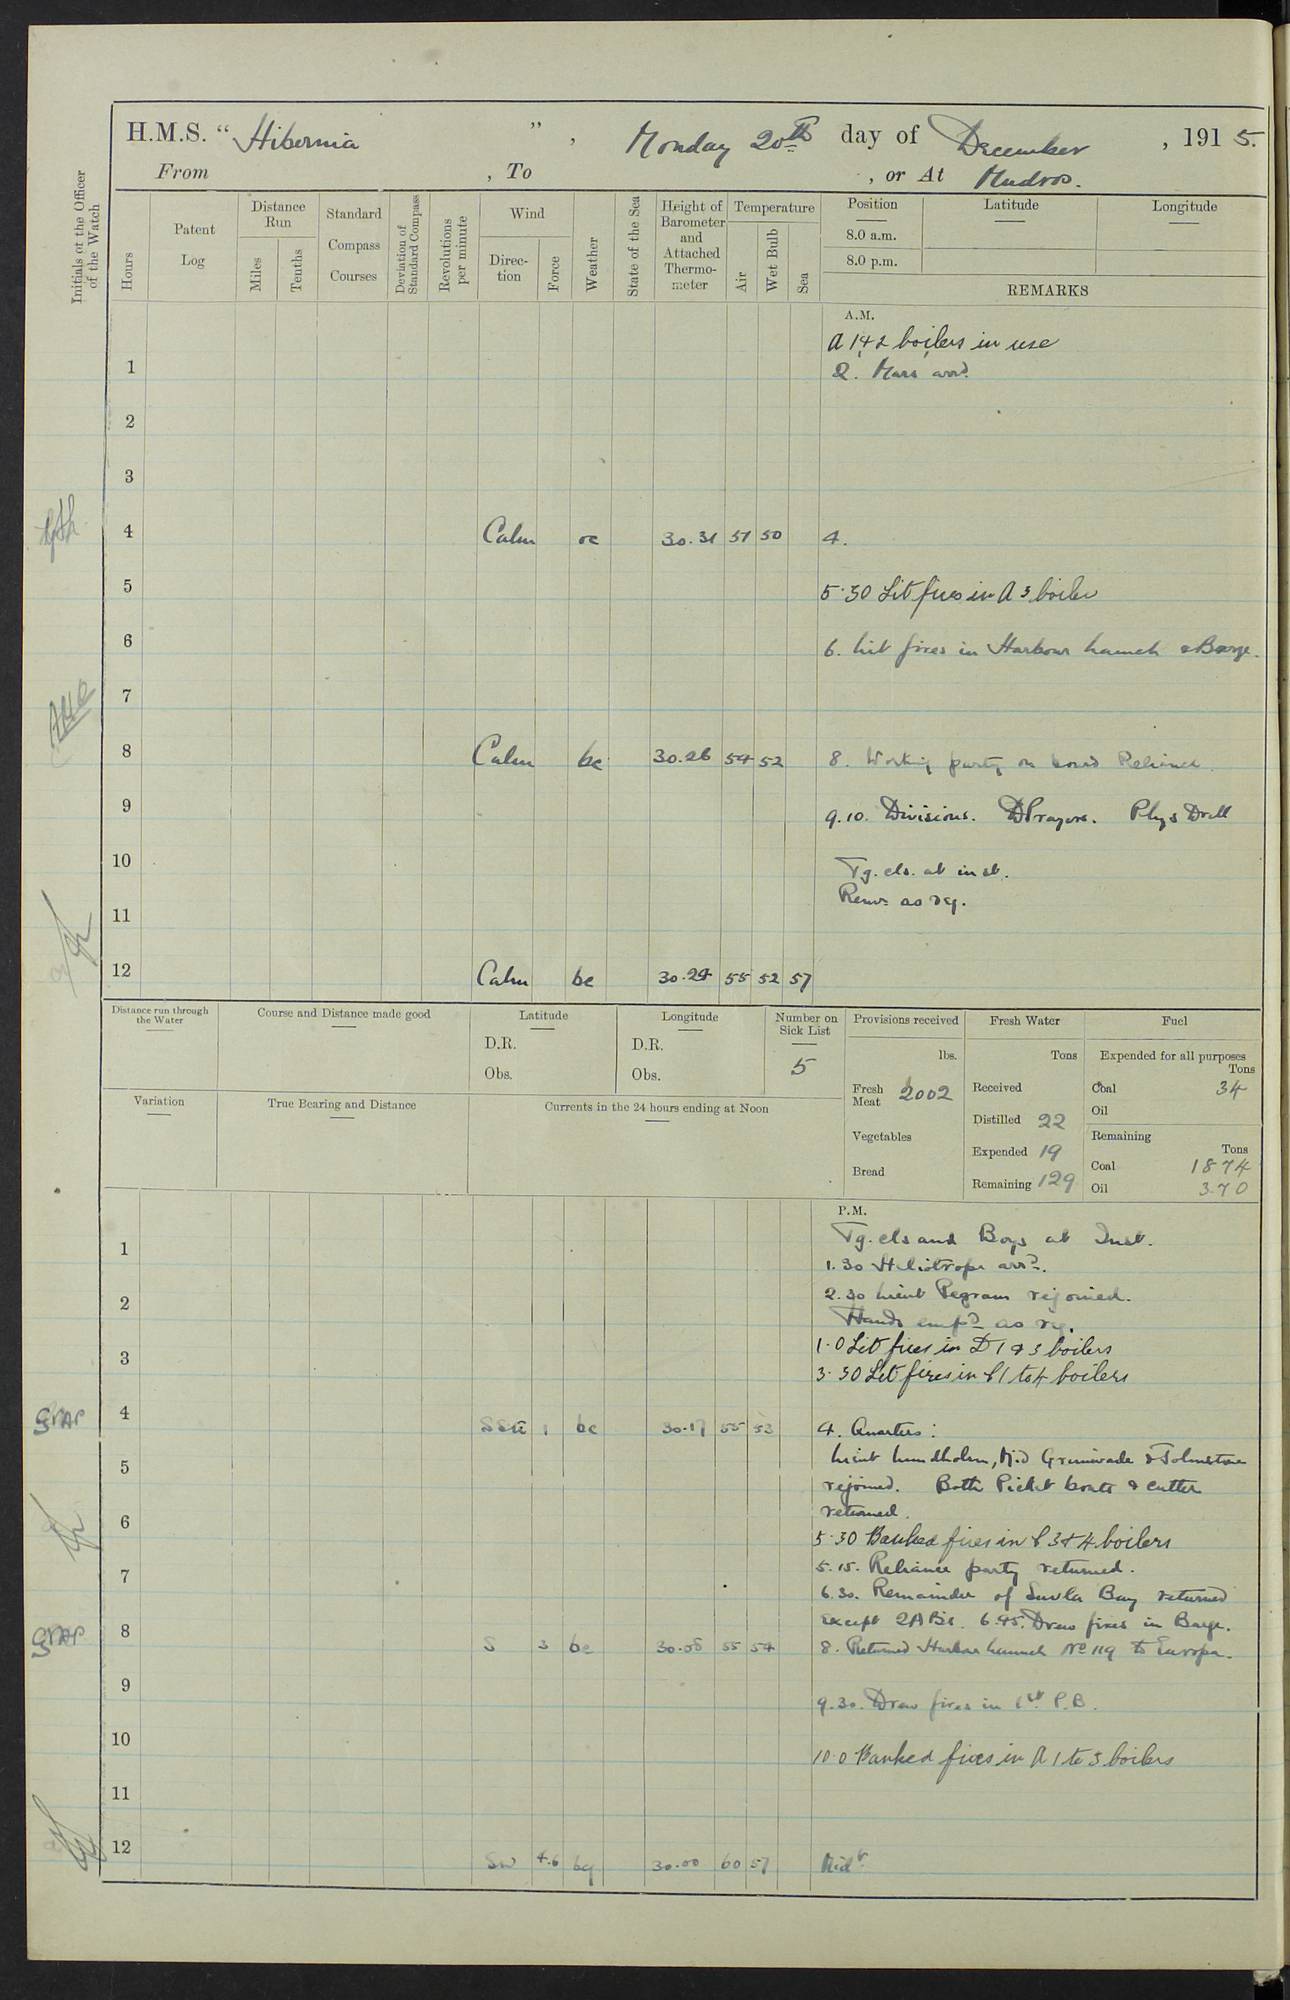 H.M.S. "Hibernia", Monday 20th day of December, 1915.
From , To , or At Mudros.
Initials of the Officer of the Watch
Hours
Patent Log
Distance Run
Miles
Tenths
Standard Compass Courses
Deviation of Standard Compass
Revolutions per minute
Wind
Direction
Force
Weather
State of the Sea
Height of Barometer and Attached Thermometer
Temperature
Air
Wet Bulb
Sea
Position
8.0 a.m.
8.0 p.m.
Latitude
Longitude
REMARKS
A.M.
A 1 & 2 boilers in use
1
2. Mars arrd.
2
3
4 Calm oc 30.31 51 50 4.
5
5.30 Lit fires in A 3 boiler
6
6. Lit fires in Harbour Launch & Barge.
7
8 Calm bc 30.26 54 52 8. Working party on board Reliance.
9
9.10. Divisions. DPrayers. Phys Drill
10
Tg. cls. at inst.
11 Remr. as req.
12 Calm bc 30.24 55 52 57
Distance run through the Water
Course and Distance made good
Latitude
D.R.
Obs.
Longitude
D.R.
Obs.
Number on Sick List
5
Provisions received
lbs.
Fresh Meat 2002
Vegetables
Bread
Fresh Water
Tons
Received
Distilled 22
Expended 19
Remaining 129
Fuel
Expended for all purposes
Tons
Coal 34
Oil
Remaining
Tons
Coal 1874
Oil 370
Variation
True Bearing and Distance
Currents in the 24 hours ending at Noon
P.M.
Tg. cls and Boys at Inst.
1
1.30 Heliotrope arrd.
2
2.30 Lieut Pegram rejoined.
Hands empd as req.
3
1.0 Lit fires in D 1 & 3 boilers
3.30 Lit fires in C 1 to 4 boilers
GRAP
4 SSE 1 bc 30.17 55 53 4. Quarters:
5
Lieut Lundholm, Mid Grinwade & Johnstone
rejoined. Both Picket boats & cutter
6 returned.
5.30 Banked fires in C 3 & 4 boilers
7
5.15. Reliance party returned.
6.30. Remainder of Suvla Bay returned
except 2 ABs. 6.45. Drew fires in Barge.
GRAP
8 S 3 bc 30.08 55 54 8. Returned Harbour Launch No 119 to Europa.
9
9.30. Drew fires in 1st P.B.
10
10.0 Banked fires in A 1 to 3 boilers
11
12 SW 4.6 bq 30.00 60 57 Midt.